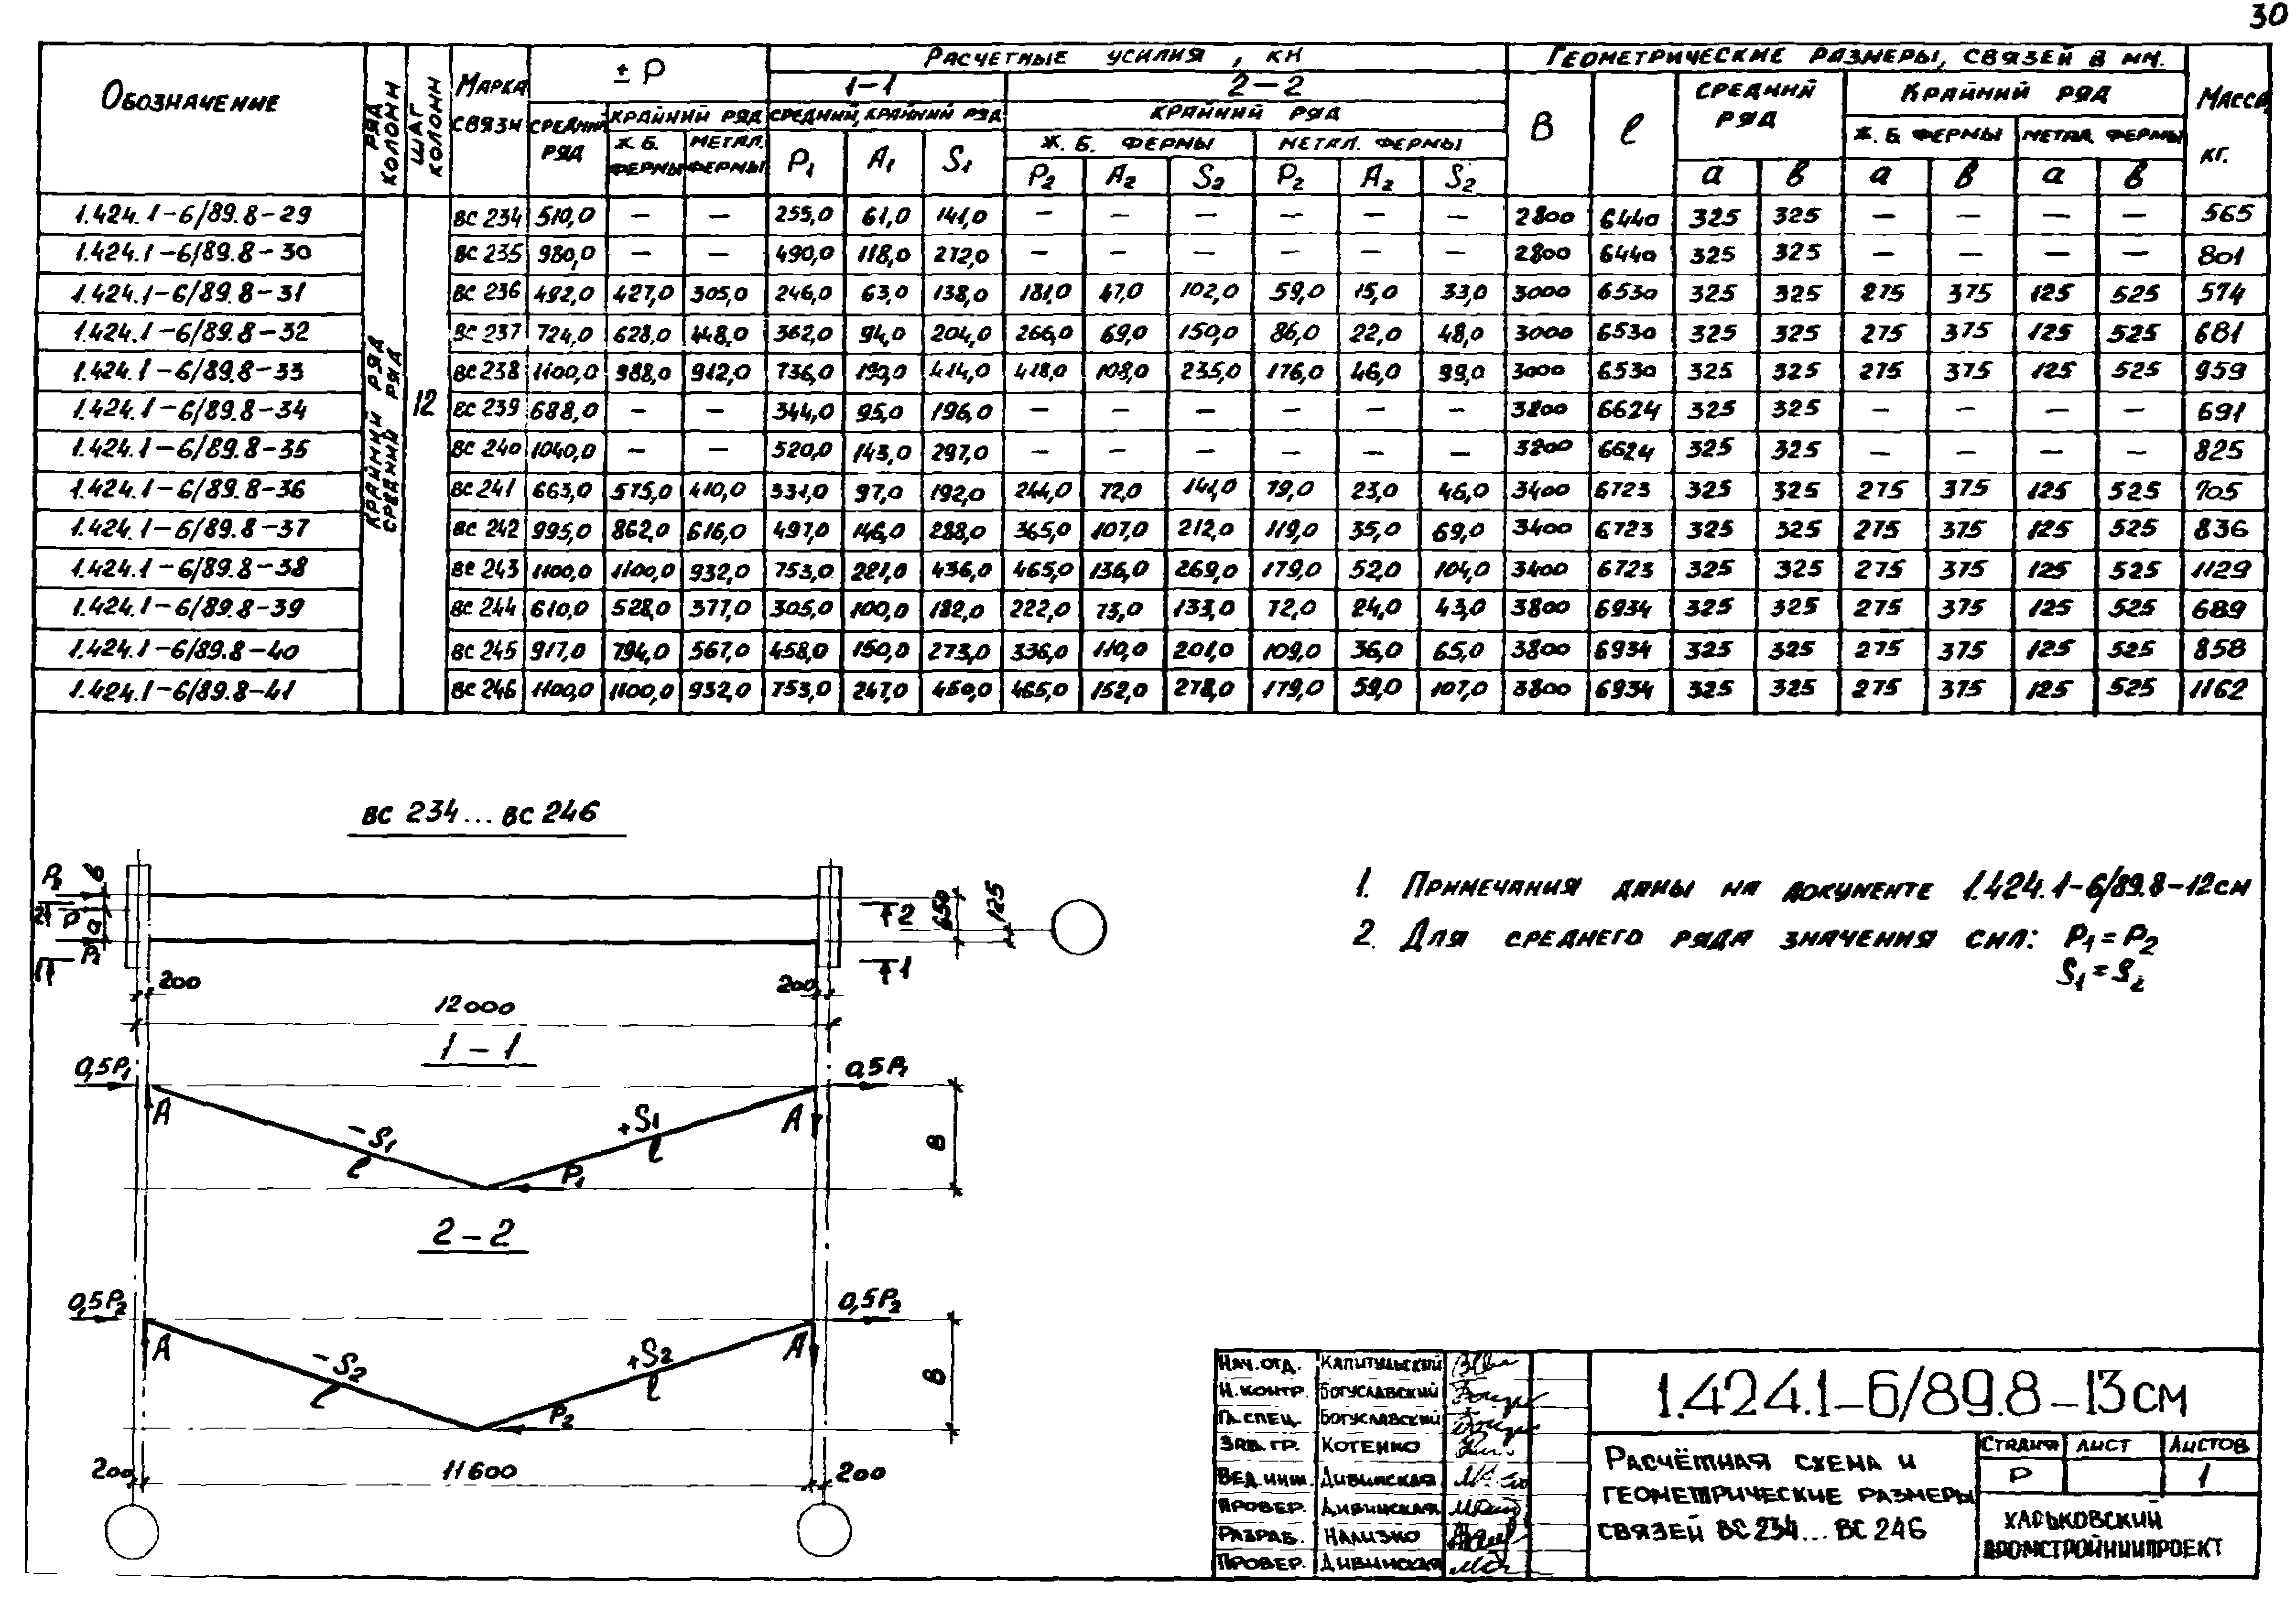 30
Обозначение | Ряд колонн | Шаг колонн | Марка связи | ± Р | Расчетные усилия, кн | Геометрические размеры, связей в мм. | Масса кг.
1-1 | 2-2 | В | ℓ | средний ряд | Крайний ряд
средний ряд | крайний ряд | средний, крайний ряд | крайний ряд | ж.б. фермы | метал. фермы
ж.б. фермы | метал. фермы | Р1 | А1 | S1 | ж.б. фермы | метал. фермы
Р2 | А2 | S2 | Р2 | А2 | S2 | а | в | а | в | а | в
крайний ряд средний ряд | 12
1.424.1-6/89.8-29 | ВС 234 | 510,0 | — | — | 255,0 | 61,0 | 141,0 | — | — | — | — | — | — | 2800 | 6440 | 325 | 325 | — | — | — | — | 565
1.424.1-6/89.8-30 | ВС 235 | 980,0 | — | — | 490,0 | 118,0 | 272,0 | — | — | — | — | — | — | 2800 | 6440 | 325 | 325 | — | — | — | — | 801
1.424.1-6/89.8-31 | ВС 236 | 492,0 | 427,0 | 305,0 | 246,0 | 63,0 | 138,0 | 181,0 | 47,0 | 102,0 | 59,0 | 15,0 | 33,0 | 3000 | 6530 | 325 | 325 | 275 | 375 | 125 | 525 | 574
1.424.1-6/89.8-32 | ВС 237 | 724,0 | 628,0 | 448,0 | 362,0 | 94,0 | 204,0 | 266,0 | 69,0 | 150,0 | 86,0 | 22,0 | 48,0 | 3000 | 6530 | 325 | 325 | 275 | 375 | 125 | 525 | 681
1.424.1-6/89.8-33 | ВС 238 | 1100,0 | 988,0 | 912,0 | 736,0 | 190,0 | 414,0 | 418,0 | 108,0 | 235,0 | 176,0 | 46,0 | 99,0 | 3000 | 6530 | 325 | 325 | 275 | 375 | 125 | 525 | 959
1.424.1-6/89.8-34 | ВС 239 | 688,0 | — | — | 344,0 | 95,0 | 196,0 | — | — | — | — | — | — | 3200 | 6624 | 325 | 325 | — | — | — | — | 691
1.424.1-6/89.8-35 | ВС 240 | 1040,0 | — | — | 520,0 | 143,0 | 297,0 | — | — | — | — | — | — | 3200 | 6624 | 325 | 325 | — | — | — | — | 825
1.424.1-6/89.8-36 | ВС 241 | 663,0 | 575,0 | 410,0 | 331,0 | 97,0 | 192,0 | 244,0 | 72,0 | 141,0 | 79,0 | 23,0 | 46,0 | 3400 | 6723 | 325 | 325 | 275 | 375 | 125 | 525 | 705
1.424.1-6/89.8-37 | ВС 242 | 995,0 | 862,0 | 616,0 | 497,0 | 146,0 | 288,0 | 365,0 | 107,0 | 212,0 | 119,0 | 35,0 | 69,0 | 3400 | 6723 | 325 | 325 | 275 | 375 | 125 | 525 | 836
1.424.1-6/89.8-38 | ВС 243 | 1100,0 | 1100,0 | 932,0 | 753,0 | 221,0 | 436,0 | 465,0 | 136,0 | 269,0 | 179,0 | 52,0 | 104,0 | 3400 | 6723 | 325 | 325 | 275 | 375 | 125 | 525 | 1129
1.424.1-6/89.8-39 | ВС 244 | 610,0 | 528,0 | 377,0 | 305,0 | 100,0 | 182,0 | 222,0 | 73,0 | 133,0 | 72,0 | 24,0 | 43,0 | 3800 | 6934 | 325 | 325 | 275 | 375 | 125 | 525 | 689
1.424.1-6/89.8-40 | ВС 245 | 917,0 | 794,0 | 567,0 | 458,0 | 150,0 | 273,0 | 336,0 | 110,0 | 201,0 | 109,0 | 36,0 | 65,0 | 3800 | 6934 | 325 | 325 | 275 | 375 | 125 | 525 | 858
1.424.1-6/89.8-41 | ВС 246 | 1100,0 | 1100,0 | 932,0 | 753,0 | 247,0 | 450,0 | 465,0 | 152,0 | 278,0 | 179,0 | 59,0 | 107,0 | 3800 | 6934 | 325 | 325 | 275 | 375 | 125 | 525 | 1162
ВС 234... ВС 246
Р2 в
2 Р а 2 650 125
Р1
1 1
200 200
12000
1-1
0,5Р1 0,5Р1
А -S1 +S1 А
ℓ ℓ в
Р1
2-2
0,5Р2 0,5Р2
А -S2 +S2 А
ℓ ℓ в
Р2
200 11600 200
1. Примечания даны на документе 1.424.1-6/89.8-12см
2. Для среднего ряда значения сил: Р1 = Р2
S1 = S2
Нач. отд. Капитульский
Н. контр. Богуславский
Гл. спец. Богуславский
Зав. гр. Котенко
Вед. инж. Дивинская
Провер. Дивинская
Разраб. Нализко
Провер. Дивинская
1.424.1-6/89.8-13см
Расчётная схема и
геометрические размеры
связей ВС 234... ВС 246
Стадия Лист Листов
Р 1
Харьковский
Промстройниипроект